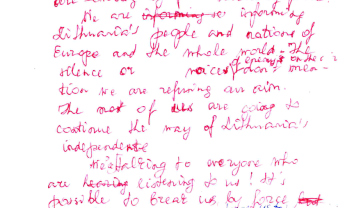 We are informing
Lithuania's people and nations of
Europe and the whole world - The
silence or
tion we are refusing an aim.
The most of us are going to
continue the way of Lithuania's
independente
We talking to everyone who
are hearing listening to us! It's
possible to break us by force